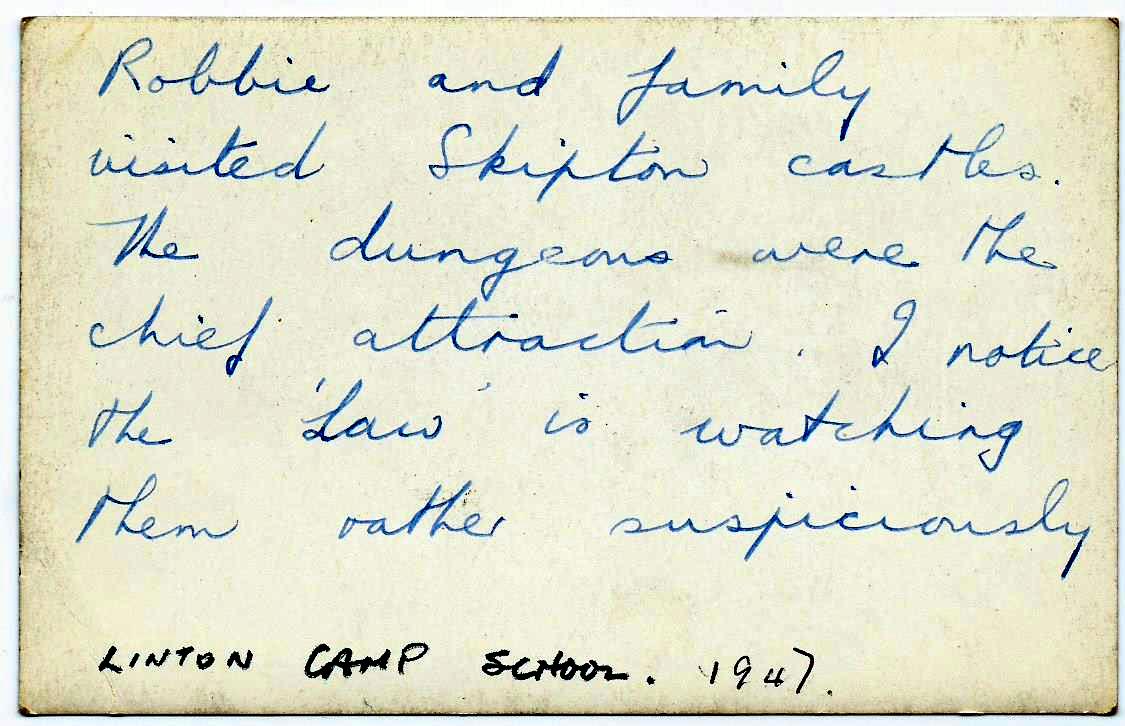 Robbie and family
visited Skipton castles.
The dungeons were the
chief attraction. I notice
the 'Law' is watching
them rather suspiciously
LINTON CAMP SCHOOL. 1947.